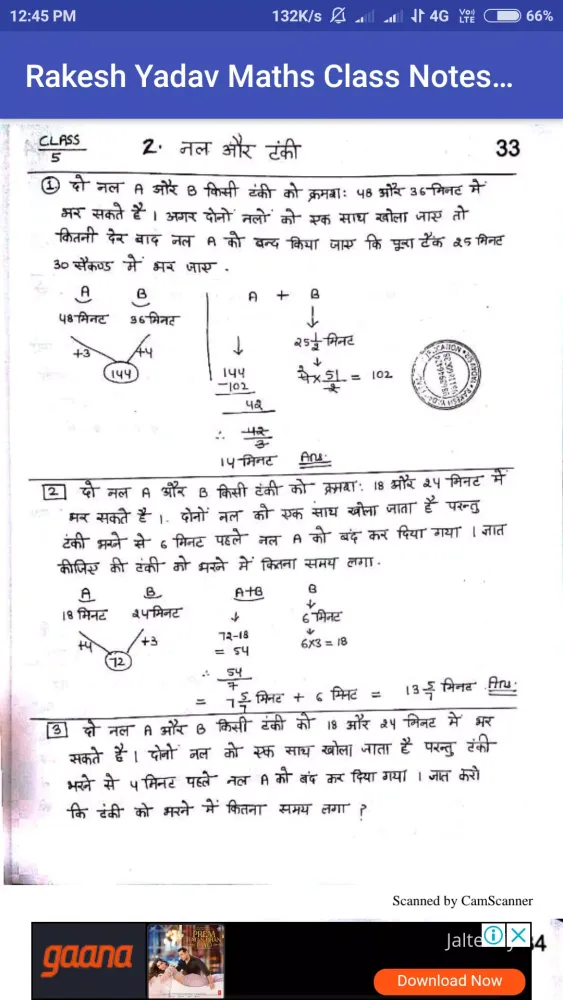 12:45 PM 132K/s 4G VoLTE 66%
Rakesh Yadav Maths Class Notes...
CLASS 5 2. नल और टंकी 33
① दो नल A और B किसी टंकी को क्रमशः 48 और 36 मिनट में
भर सकते है । अगर दोनों नलों को एक साथ खोला जाए तो
कितनी देर बाद नल A को बन्द किया जाए कि पूरा टैंक 25 मिनट
30 सैकण्ड में भर जाए .
A B A + B
48 मिनट 36 मिनट 25 1/2 मिनट
+3 +4
144
144
-102
42
× 51/2 = 102
∴ 42/3
14 मिनट Ans:
2 दो नल A और B किसी टंकी को क्रमशः 18 और 24 मिनट में
भर सकते है । . दोनों नल को एक साथ खोला जाता है परन्तु
टंकी भरने से 6 मिनट पहले नल A को बंद कर दिया गया । ज्ञात
कीजिए की टंकी को भरने में कितना समय लगा .
A B A+B B
18 मिनट 24 मिनट 6 मिनट
+4 +3 72-18 6×3 = 18
72 = 54
∴ 54/7
= 7 5/7 मिनट + 6 मिनट = 13 5/7 मिनट Ans:
3 दो नल A और B किसी टंकी को 18 और 24 मिनट में भर
सकते है । दोनों नल को एक साथ खोला जाता है परन्तु टंकी
भरने से 4 मिनट पहले नल A को बंद कर दिया गया । ज्ञात करो
कि टंकी को भरने में कितना समय लगा ?
Scanned by CamScanner
gaana
PREM
34
Download Now